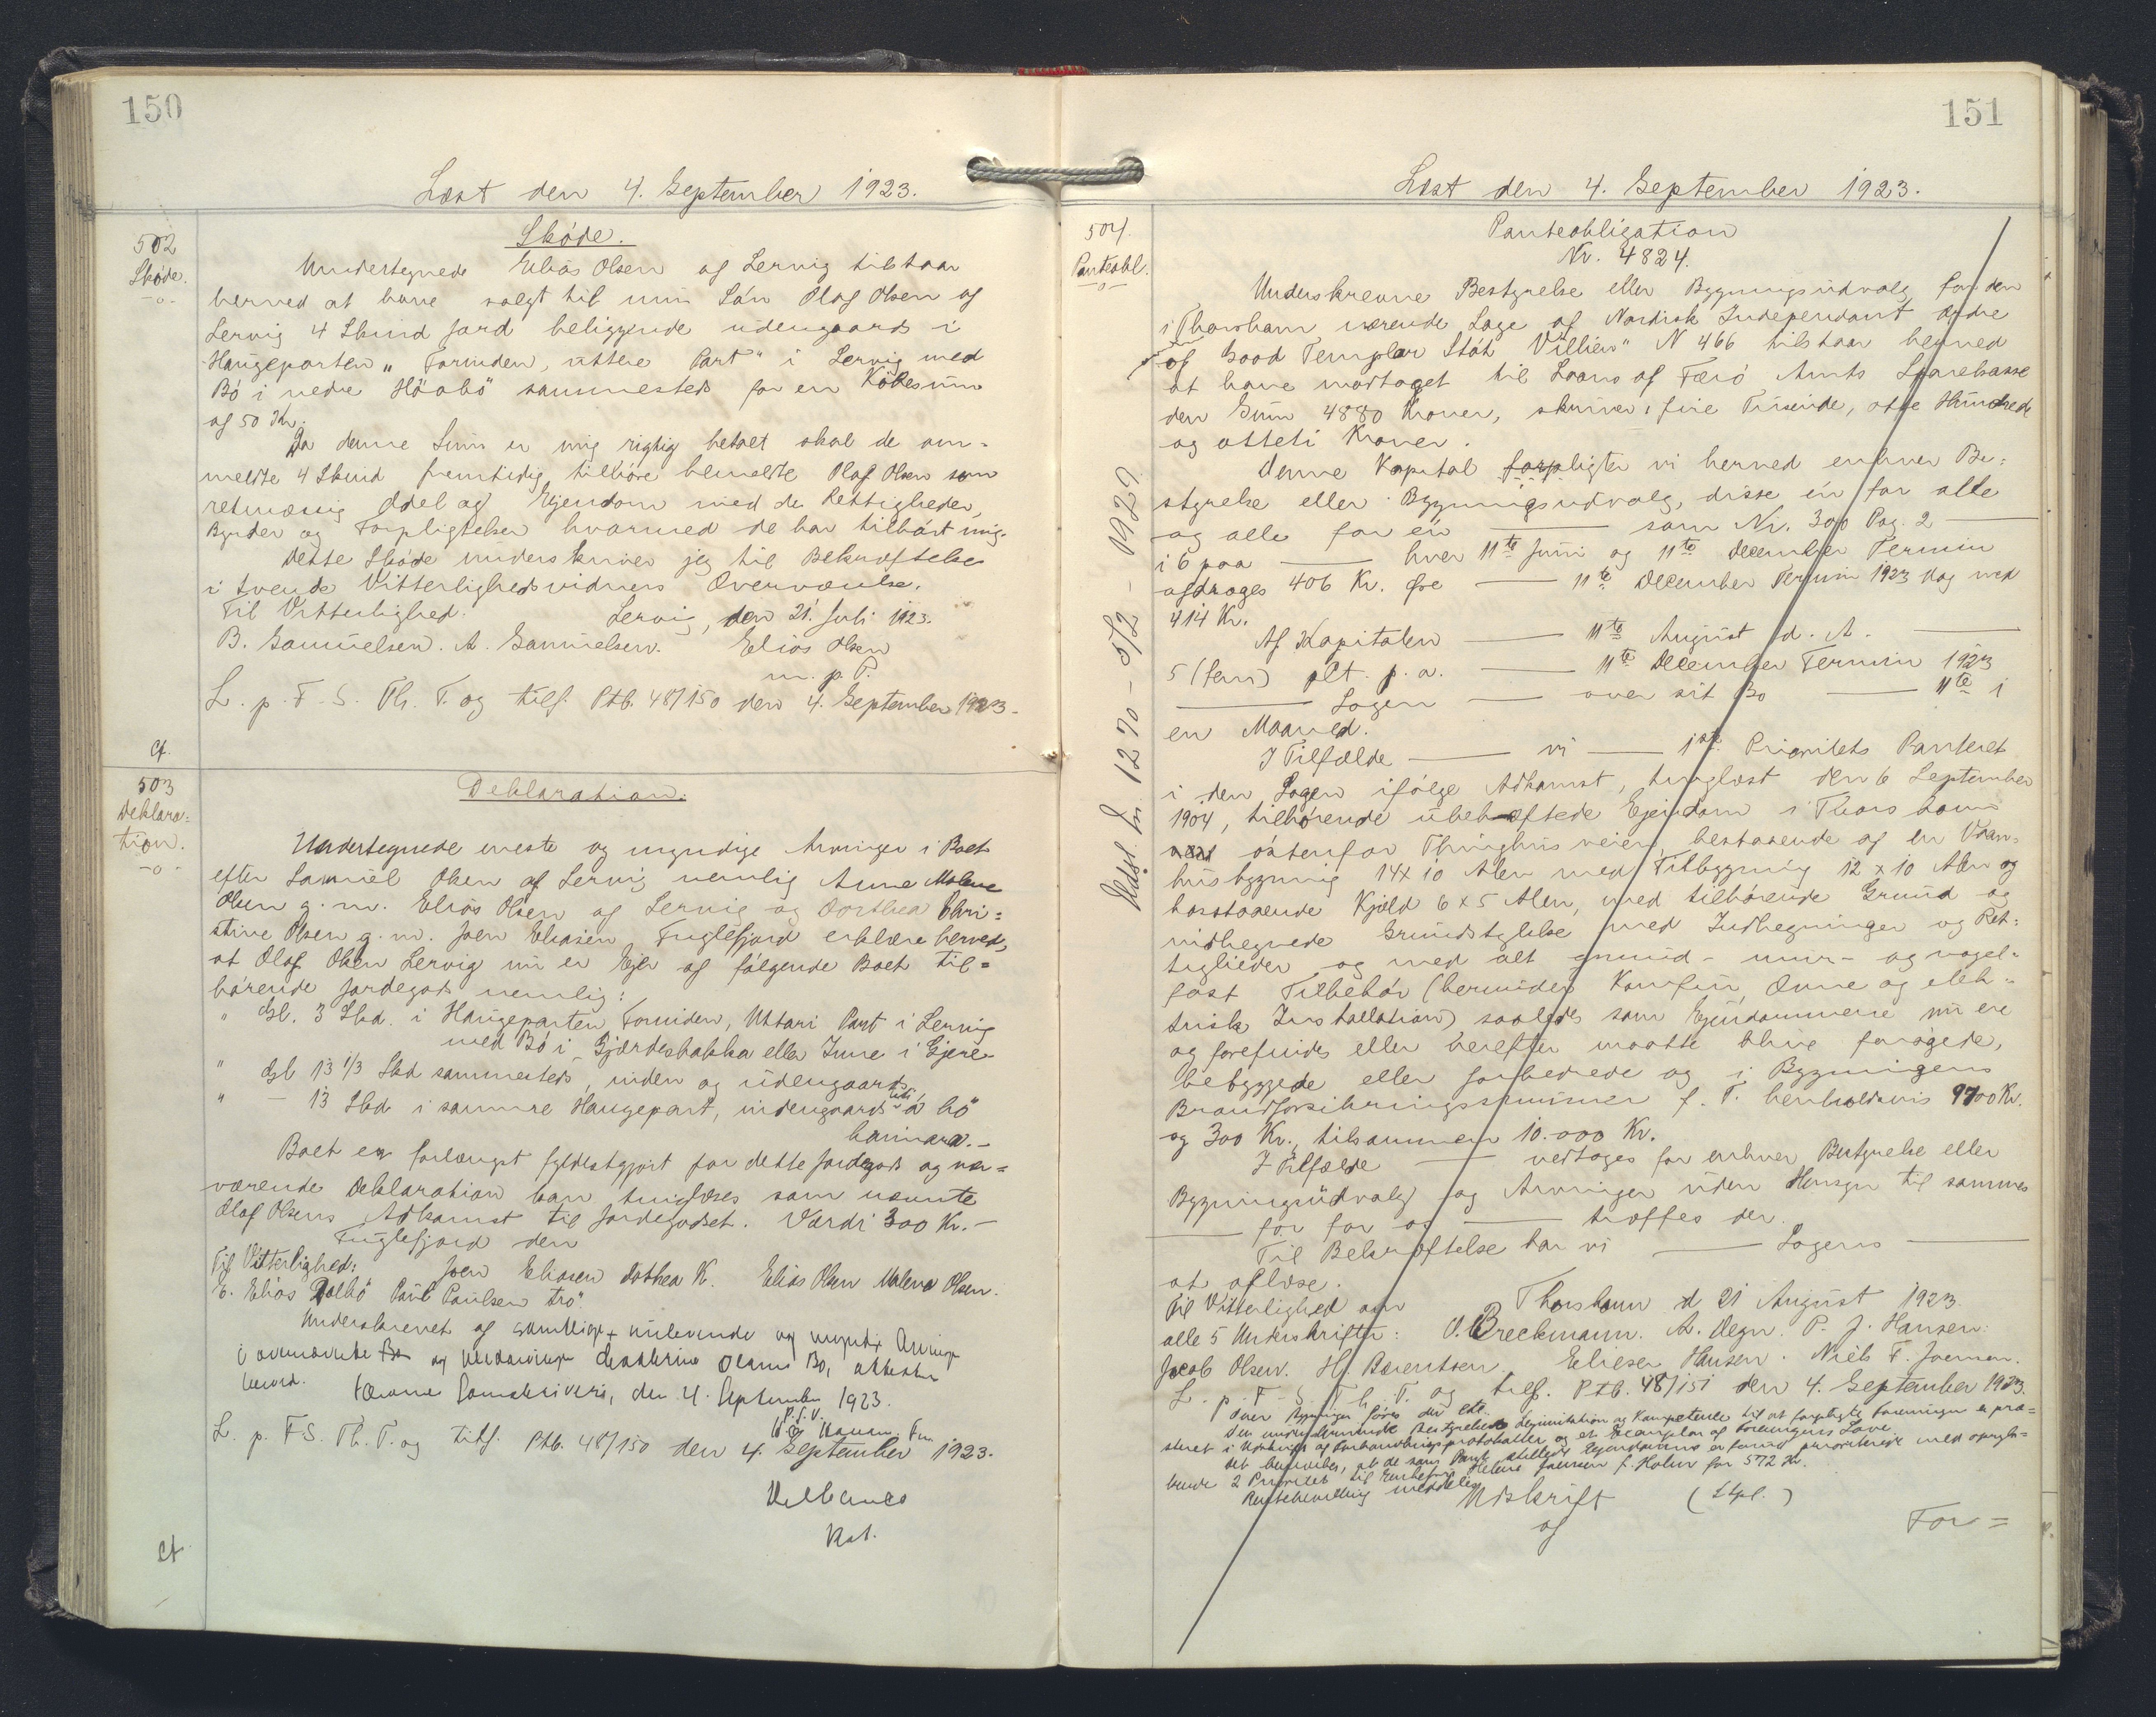 150
Læst den 4. September 1923.
502
Skøde.
Skøde.
Undertegnede Eliás Olsen af Lervig tilstaar
herved at have solgt til min Sön Olaf Olsen af
Lervig 4 Skind Jord beliggende udengaards i
Haugeparten "Forinden, uttere Part" i Lervig med
Bö i nedre Höabö sammesteds for en Köbesum
af 50 Kr.
Da denne Sum er mig rigtig betalt skal de om=
meldte 4 Skind fremtidig tilhöre bemeldte Olaf Olsen som
retmæssig Odel og Ejendom med de Rettigheder,
Byrder og Forpligtelser hvormed de har tilhört mig.
Dette Skøde underskriver jeg til Bekræftelse
i tvende Vitterlighedsvidners Overværelse.
Til Vitterlighed. Lervig, den 21. Juli 1923.
B. Samuelsen. A. Samuelsen. Eliás Olsen
m. p. P.
L. p. F. S. Th. T. og tilf. Ptb. 48/150 den 4. September 1923.
cf.
503
Deklara=
tion.
Deklaration.
Undertegnede eneste og myndige Arvinger i Boet
efter Samuel Olsen af Lervig nemlig Anne Malene
Olsen g. m. Eliás Olsen af Lervig og Dorthea Chri=
stine Olsen g. m. Joen Eliasen Fuglefjord erklære herved,
at Olaf Olsen Lervig nu er Ejer af følgende Boet til=
hørende Jordegods nemlig:
" Gl. 3 Skd. i Haugeparten Forinden, Uttari Part i Lervig
med Bö i Gjærdesbakka eller Inne i Gjere
" Gl 13 1/3 Skd sammesteds, inden og udengaards
" - 13 Skd i samme Haugepart, indengaards á bö
hamara.-
Boet er forlængst fyldestgjort for dette Jordegods og nær=
værende Deklaration kan tinglæses som nævnte
Olaf Olsens Adkomst til Jordegodset. Værdi 300 Kr.-
Fuglefjord den
Til Vitterlighed: Joen Eliasen Dothea K. Elias Olsen Malena Olsen.
E. Eliás Dalbö Poul Paulsen Trö.
Underskrevet af samtlige nulevende og myndige Arvinger
i ovennævnte Bo og attestere
herved. Færøerne Sorenskriveri, den 4. September 1923.
P. S. V.
L. p. F. S. Th. T. og tilf. Ptb. 48/150 den 4. September 1923.
Kst.
cf
151
Læst den 4. September 1923.
504.
Panteobl.
Udsl. Ln 1270 - 5/2 - 1929
Panteobligation
Nr. 4824.
Underskrevne Bestyrelse eller Bygningsudvalg for den
i Thorshavn værende Loge af Nordisk Independant Ordre
of Good Templar Stók "Villien" N 466 tilstaar herved
at have modtaget til Laans af Færö Amts Sparekasse
den Sum 4880 Kroner, skriver: fire Tusinde, otte Hundrede
og otteti Kroner.
Denne Kapital forpligter vi herved enhver Be=
styrelse eller Bygningsudvalg, disse én for alle
og alle for én — som Nr. 300 Pag. 2 —
i 6 paa — hver 11te Juni og 11te December Termin
afdrages 406 Kr. Øre — 11te December Termin 1923 dog med
414 Kr.
Af Kapitalen — 11te August d. A. —
5 (fem) pCt. p. a. — 11te December Termin 1923
— Logen — over sit Bo — 11te i
en Maaned.
I Tilfælde — vi — 1ste Prioritets Panteret
i den Logen ifölge Adkomst, tinglæst den 6 September
1904, tilhørende ubehæftede Ejendom i Thorshavn
østenfor Thinghusveien, bestaaende af en Vaan=
husbygning 14 x 10 Alen med Tilbygning 12 x 10 Alen og
hosstaaende Kjæld 6 x 5 Alen, med tilhørende Grund og
indhegnede Grundstykke med Indhegninger og Ret=
tigheder og med alt grund- mur- og nagel=
fast Tilbehör (herunder Komfur, Ovne og elek=
trisk Installation) saaledes som Ejendommene nu ere
og forefindes eller herefter maatte blive forögede,
bebyggede eller forbedrede og i Bygningens
Brandforsikringssummer f. T. henholdsvis 9700 Kr.
og 300 Kr., tilsammen 10.000 Kr.
I Tilfælde — vedtages for enhver Bestyrelse eller
Bygningsudvalg og Arvinger uden Hensyn til sammes
— for for os — træffes der.
Til Bekræftelse har vi — Logens —
at aflæse.
Til Vitterlighed om Thorshavn d 21 August 1923.
alle 5 Underskrifter: O. Breckmann. A. Degn. P. J. Hansen.
Jacob Olsen. Hj. Berentsen. Elieser Hansen. Niels F. Joensen.
L. p. F. S. Th. T. og tilf. Ptb. 48/151 den 4. September 1923.
Den underskrivende Bestyrelses Legimitation og Kompetence til at forpligte Foreningen er præ=
steret i Udskrift af Forhandlingsprotokoller og et Exemplar af Foreningens Love.
Det bemærkes, at de som Pant stillede Ejendomme er forud prioriterede med oprykkende 2 Prioritet til Enkefru Helene Joensen f. Holm for 572 Kr.
Rentebevilling meddeles
Udskrift (Stpl.)
af
For=